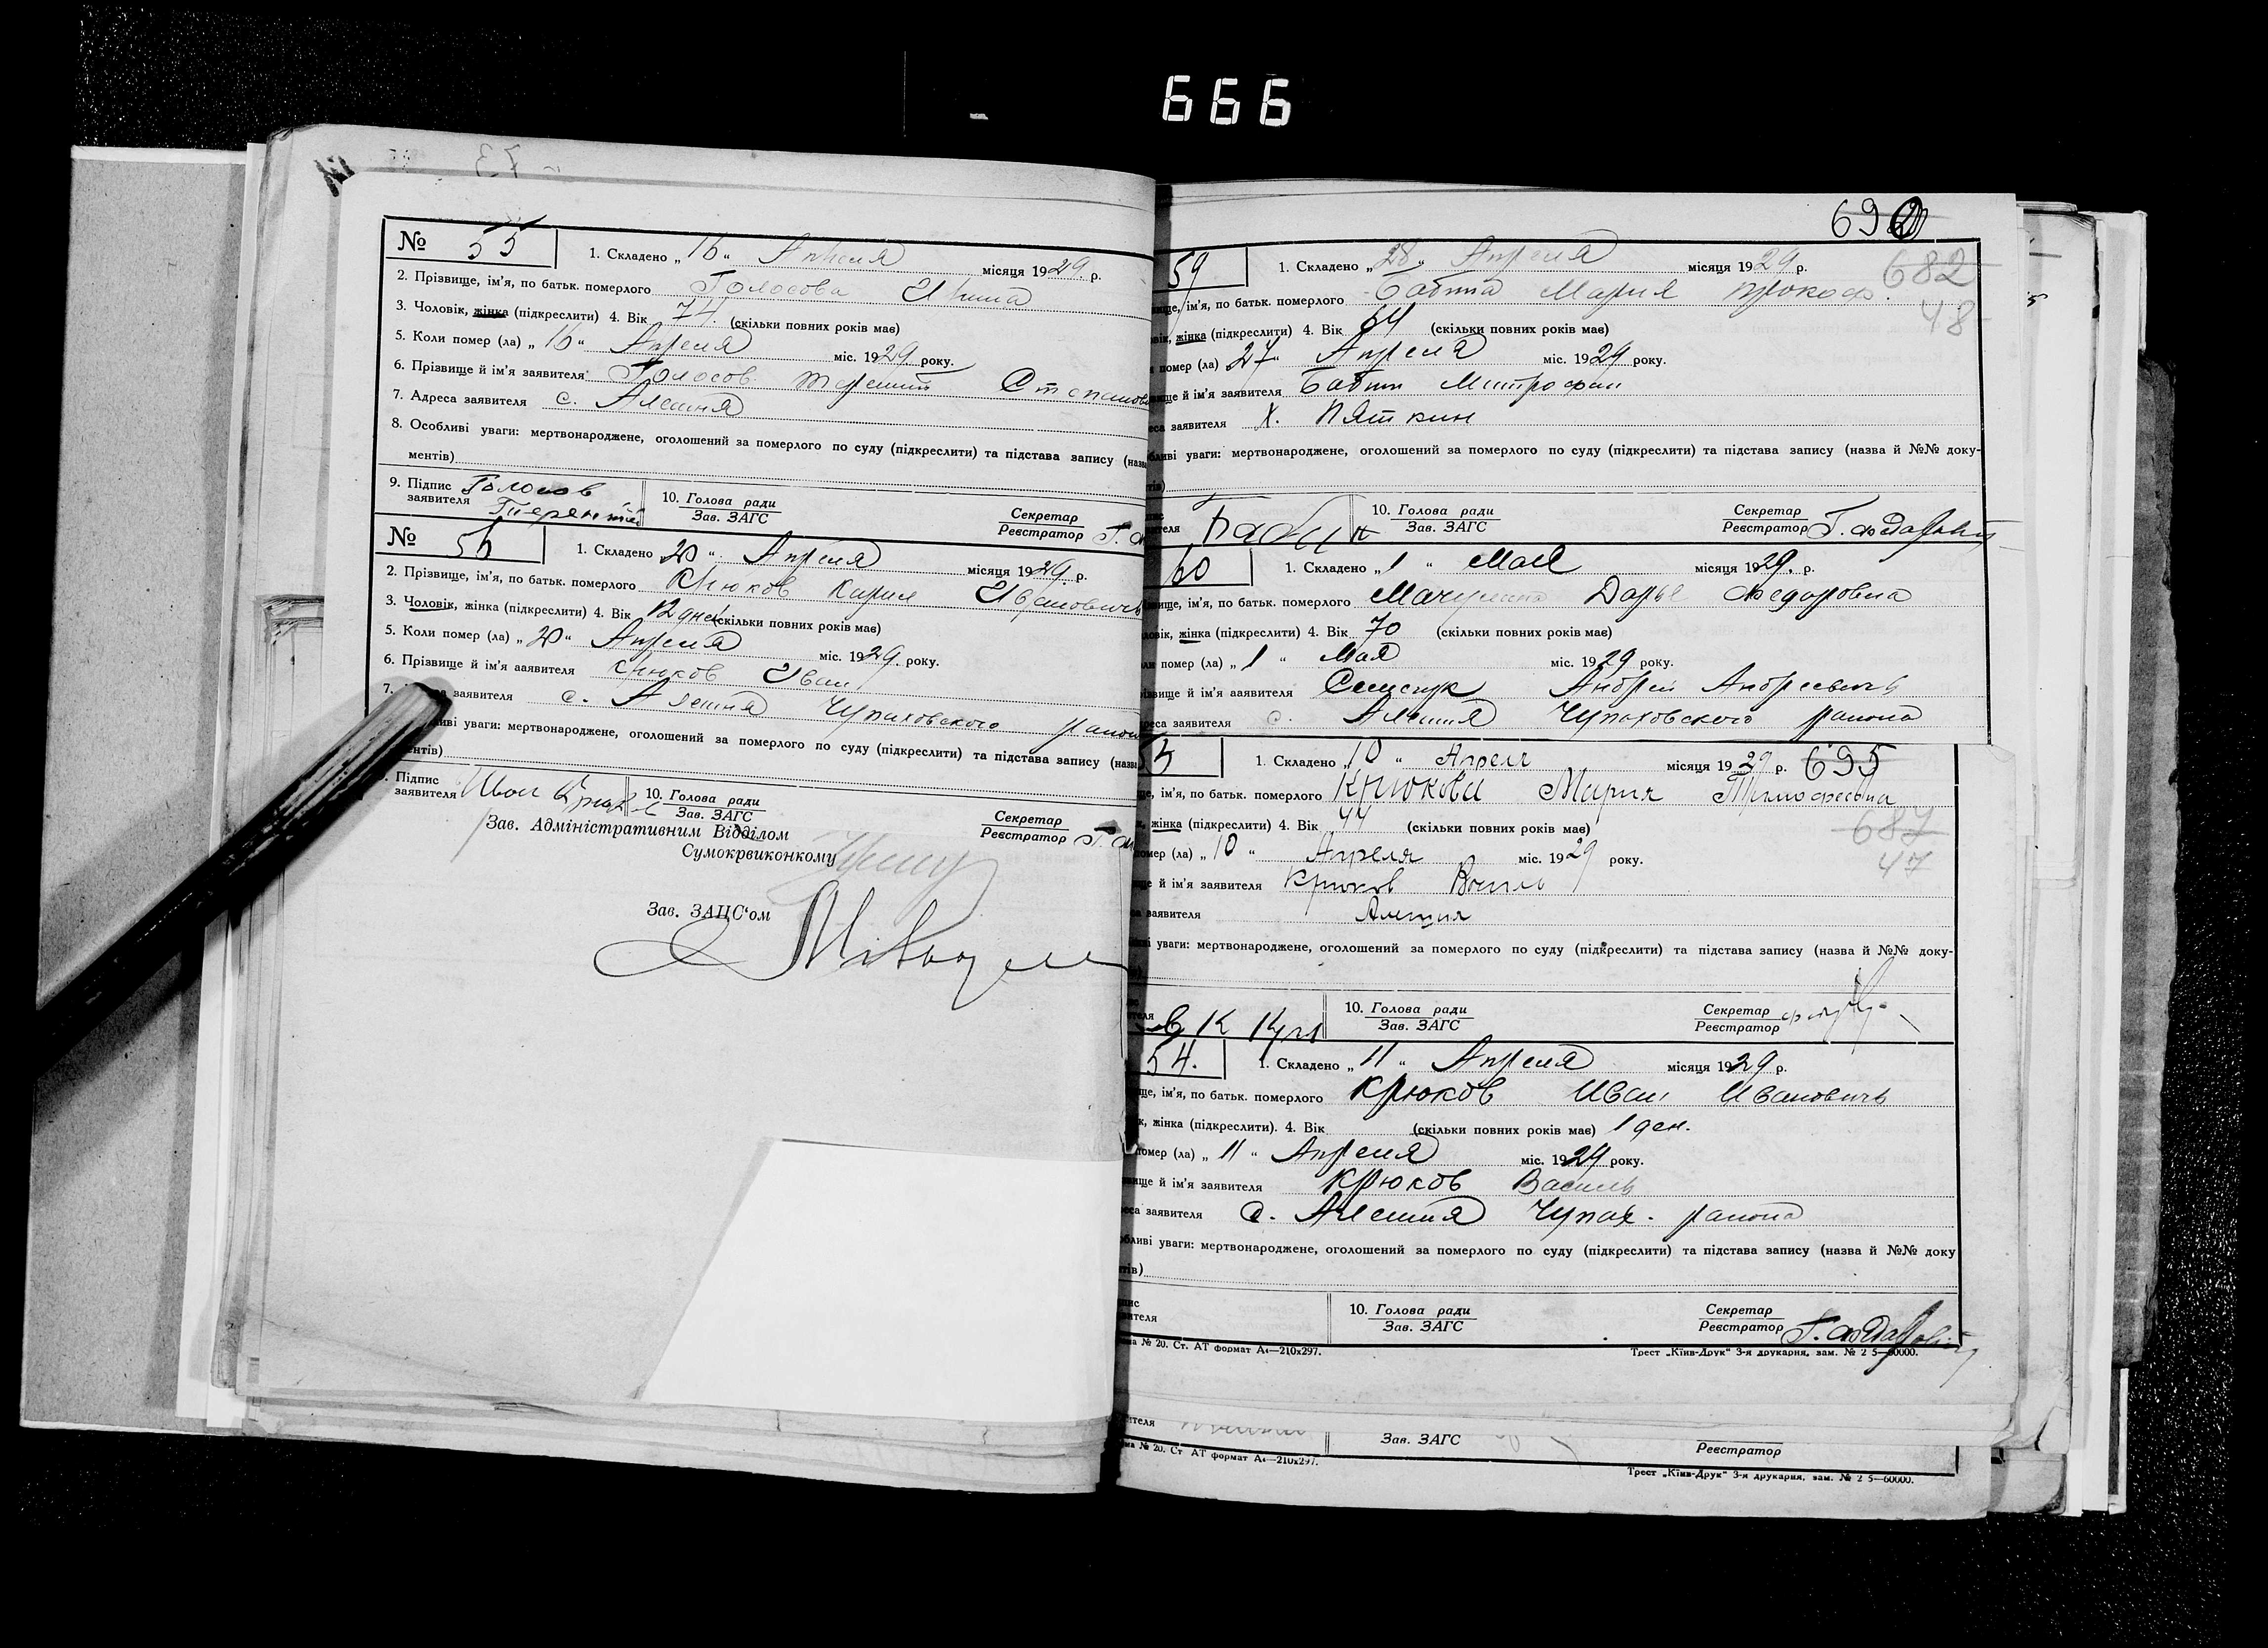 666
№ 55 1. Складено „ 16 “ Апреля місяця 1929 р.
2. Прізвище, ім'я, по батьк. померлого Голосова
3. Чоловік, жінка (підкреслити) 4. Вік 74. (скільки повних років має)
5. Коли помер (ла) „ 16 “ Апреля міс. 1929 року.
6. Прізвище й ім'я заявителя Голосов
7. Адреса заявителя с. Алешня
8. Особливі уваги: мертвонароджене, оголошений за померлого по суду (підкреслити) та підстава запису (назва
ментів)
9. Підпис заявителя Голосов Терентий
10. Голова ради
Зав. ЗАГС
Секретар
Реєстратор
№ 56 1. Складено „ 20 “ Апреля місяця 1929 р.
2. Прізвище, ім'я, по батьк. померлого Крюков Иванович
3. Чоловік, жінка (підкреслити) 4. Вік 12 дней (скільки повних років має)
5. Коли помер (ла) „ 20 “ Апреля міс. 1929 року.
6. Прізвище й ім'я заявителя Крюков Иван
7. заявителя с. Алешня Чупаховского района
уваги: мертвонароджене, оголошений за померлого по суду (підкреслити) та підстава запису (назва
ментів)
Підпис заявителя Иван
10. Голова ради
Зав. ЗАГС
Секретар
Реєстратор
Зав. Адміністративним Відділом
Сумокрвиконкому
Зав. ЗАЦС'ом
69
682
48
59 1. Складено „ 28 “ Апреля місяця 1929 р.
ім'я, по батьк. померлого Мария Прокоф.
жінка (підкреслити) 4. Вік 64 (скільки повних років має)
помер (ла) 27 “ Апреля міс. 1929 року.
й ім'я заявителя Бабин Митрофан
заявителя х. Пяткин
уваги: мертвонароджене, оголошений за померлого по суду (підкреслити) та підстава запису (назва й №№ доку-
Бабин
10. Голова ради
Зав. ЗАГС
Секретар
Реєстратор
60 1. Складено „ 1 “ Мая місяця 1929. р.
ім'я, по батьк. померлого Дарья Федоровна
жінка (підкреслити) 4. Вік 70 (скільки повних років має)
помер (ла) „ 1 “ Мая міс. 1929 року.
й ім'я заявителя Андрей Андреевич
заявителя с. Алешня Чупаховского района
1. Складено „ 10 “ Апреля місяця 1929 р. 695
ім'я, по батьк. померлого Крюкова Мария Тимофеевна
687
47
жінка (підкреслити) 4. Вік 44 (скільки повних років має)
помер (ла) „ 10 “ Апреля міс. 1929 року.
й ім'я заявителя Крюков
заявителя Алешня
уваги: мертвонароджене, оголошений за померлого по суду (підкреслити) та підстава запису (назва й №№ доку-
10. Голова ради
Зав. ЗАГС
Секретар
Реєстратор
54. 1. Складено „ 11 “ Апреля місяця 1929 р.
ім'я, по батьк. померлого Крюков Иван Иванович
жінка (підкреслити). 4. Вік (скільки повних років має) 1 ден.
помер (ла) „ 11 “ Апреля міс. 1929 року.
й ім'я заявителя Крюков Василь
заявителя с. Алешня Чупах. района
уваги: мертвонароджене, оголошений за померлого по суду (підкреслити) та підстава запису (назва й №№ доку
10. Голова ради
Зав. ЗАГС
Секретар
Реєстратор
№ 20. Ст. АТ формат А4—210х297.
Трест „Київ-Друк“ 3-я друкарня, зам. № 2 5—60000.
Зав. ЗАГС
Реєстратор
№ 20. Ст АТ формат А4—210х297.
Трест „Київ-Друк“ 3-я друкарня, зам. № 2 5—60000.